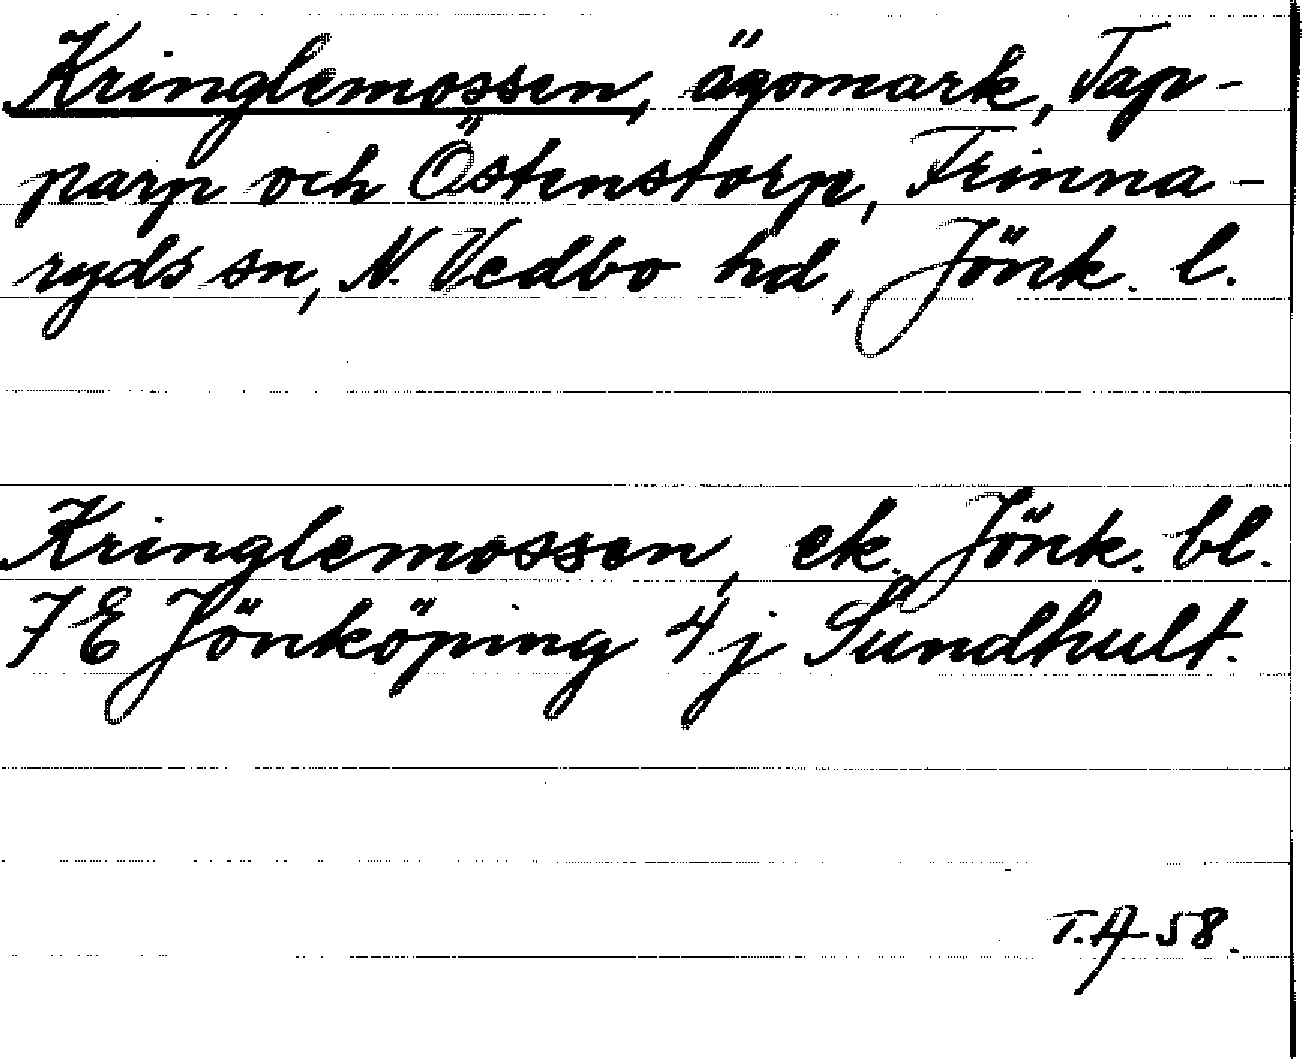 Kringlemossen, ägomark, Tap-
parp och Östenstorp, Frinna-
ryds sn, N. Vedbo hd, Jönk. l.
Kringlemossen, ek. Jönk. bl.
7E Jönköping 4j Sundhult.
T.A-58.